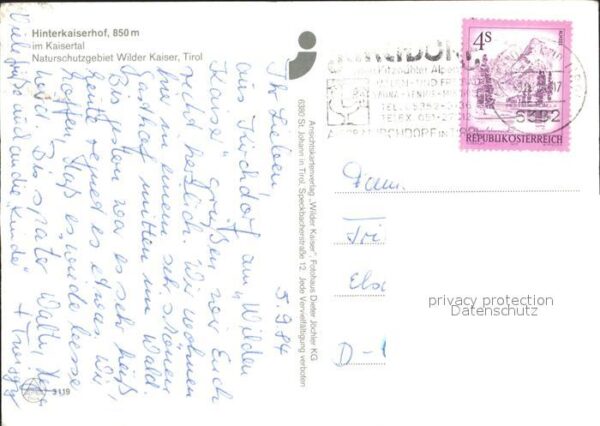 Hinterkaiserhof, 850 m
im Kaisertal
Naturschutzgebiet Wilder Kaiser, Tirol
4 S
REPUBLIK ÖSTERREICH
6382
TELEX 051-27
Ansichtskartenverlag „Wilder Kaiser", Fotohaus Dieter Jöchler KG
6380 St. Johann in Tirol, Speckbacherstraße 12. Jede Vervielfältigung verboten
5.9.84
Ihr Lieben,
aus Kirchdorf am „Wilden
Kaiser" grüßen wir Euch
recht herzlich. Wir wohnen
hier in einem sch. schönen
Gasthof mitten im Wald.
Bis war es sehr heiß
heute regnet es etwas. Wir
hoffen, daß es wieder besser
wird. Bis später Walter,
Viele Grüße auch an die Kinder +
Fam.
Els
D-
privacy protection
Datenschutz
3119